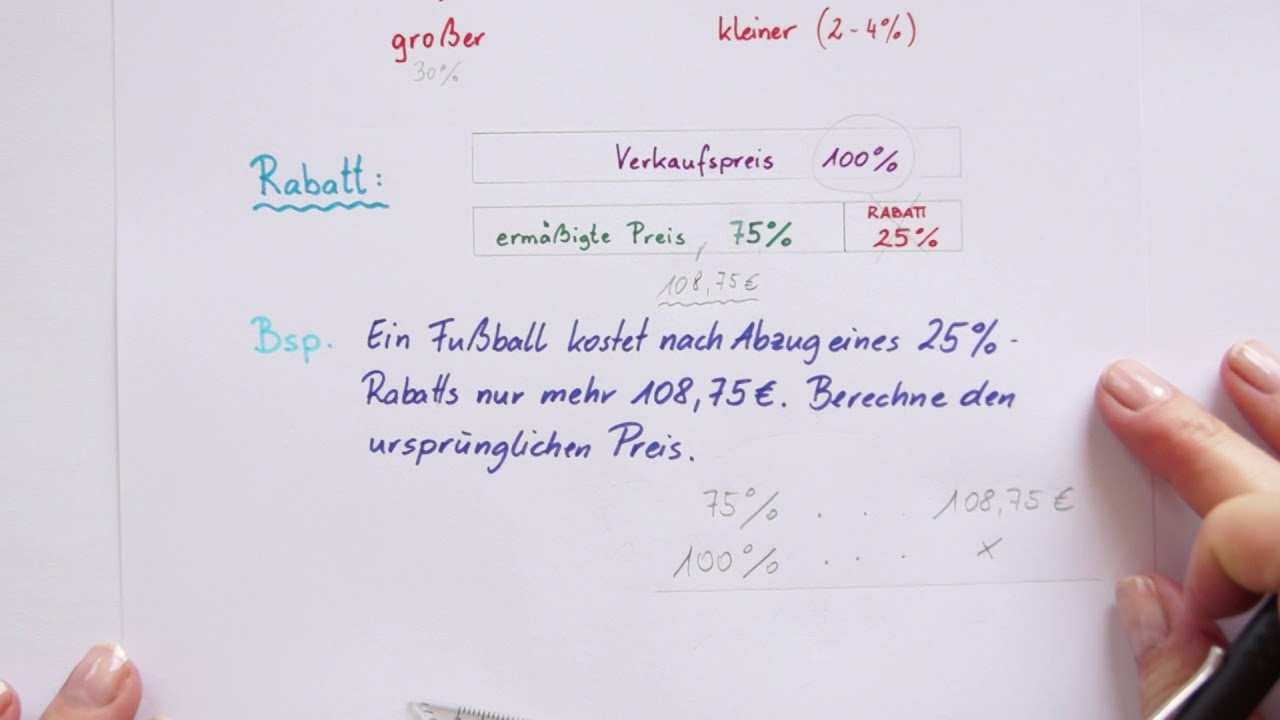 größer
kleiner (2-4%)
30%
Rabatt:
Verkaufspreis 100%
ermäßigte Preis 75%
RABATT
25%
108,75€
Bsp. Ein Fußball kostet nach Abzug eines 25%-
Rabatts nur mehr 108,75€. Berechne den
ursprünglichen Preis.
75% . . . 108,75€
100% . . . x